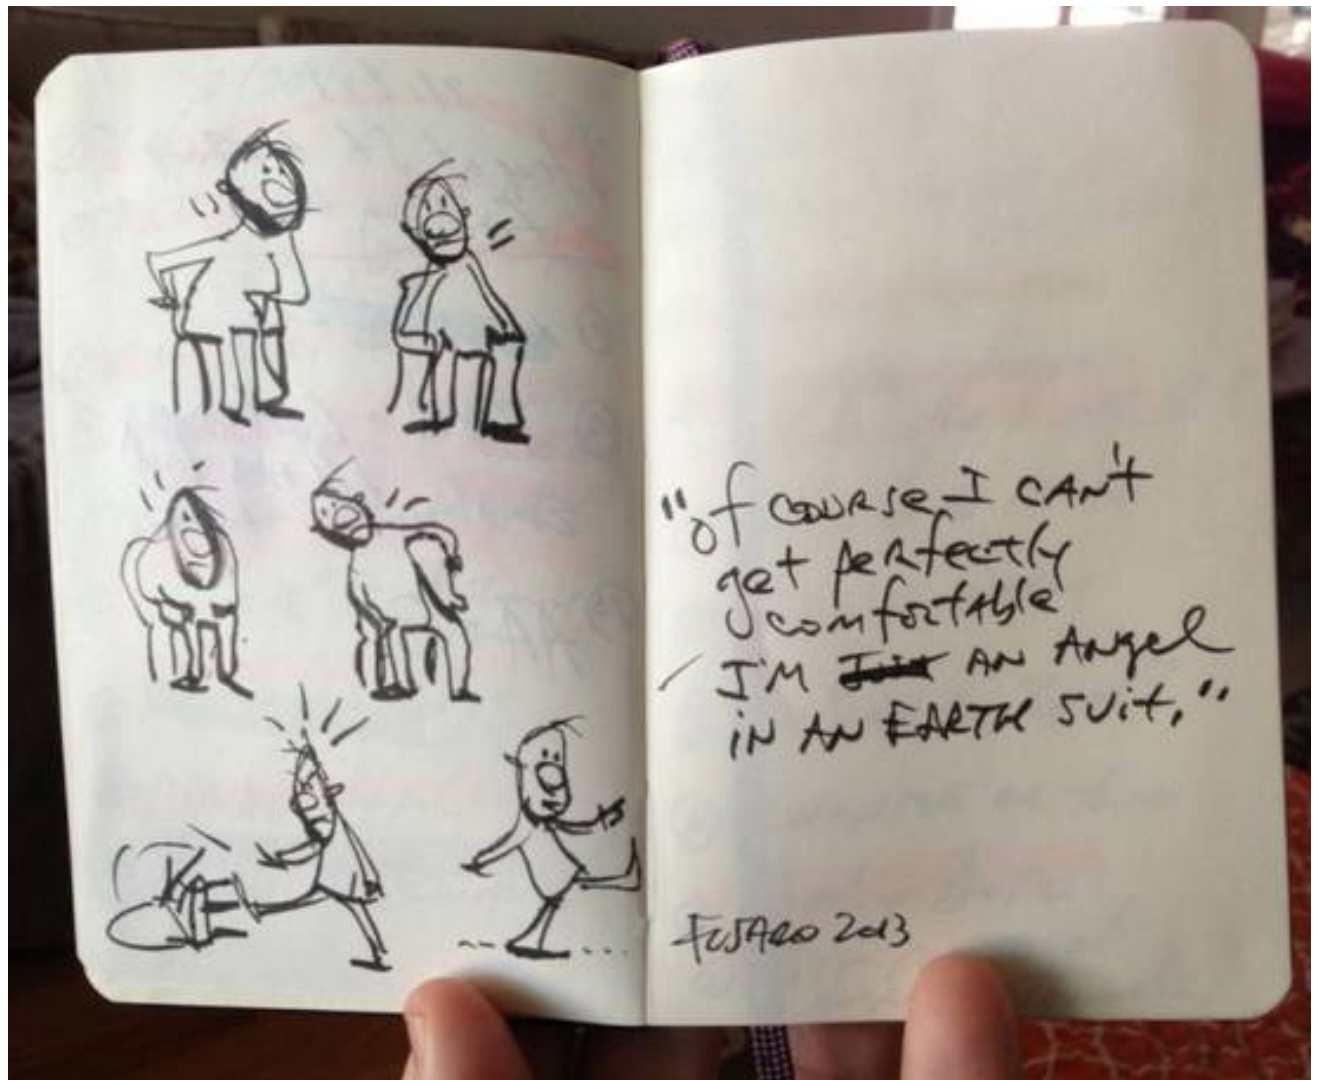 "Of course I can't
get perfectly
comfortable
I'm an Angel
in an Earth suit."
Fusaro 2013